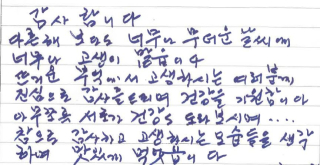 감사 합니다
다른해 보다도 너무나 무더운 날씨에
너무나 고생이 많습니다
뜨거운 주방에서 고생하시는 여러분께
진심으로 감사를드리며 건강을 기원합니다
아무쪼록 서로가 건강도 돌봐보시며 ....
참으로 감사하고 고생하시는 모습들을 생각
하며 맛있게 먹엇읍니다